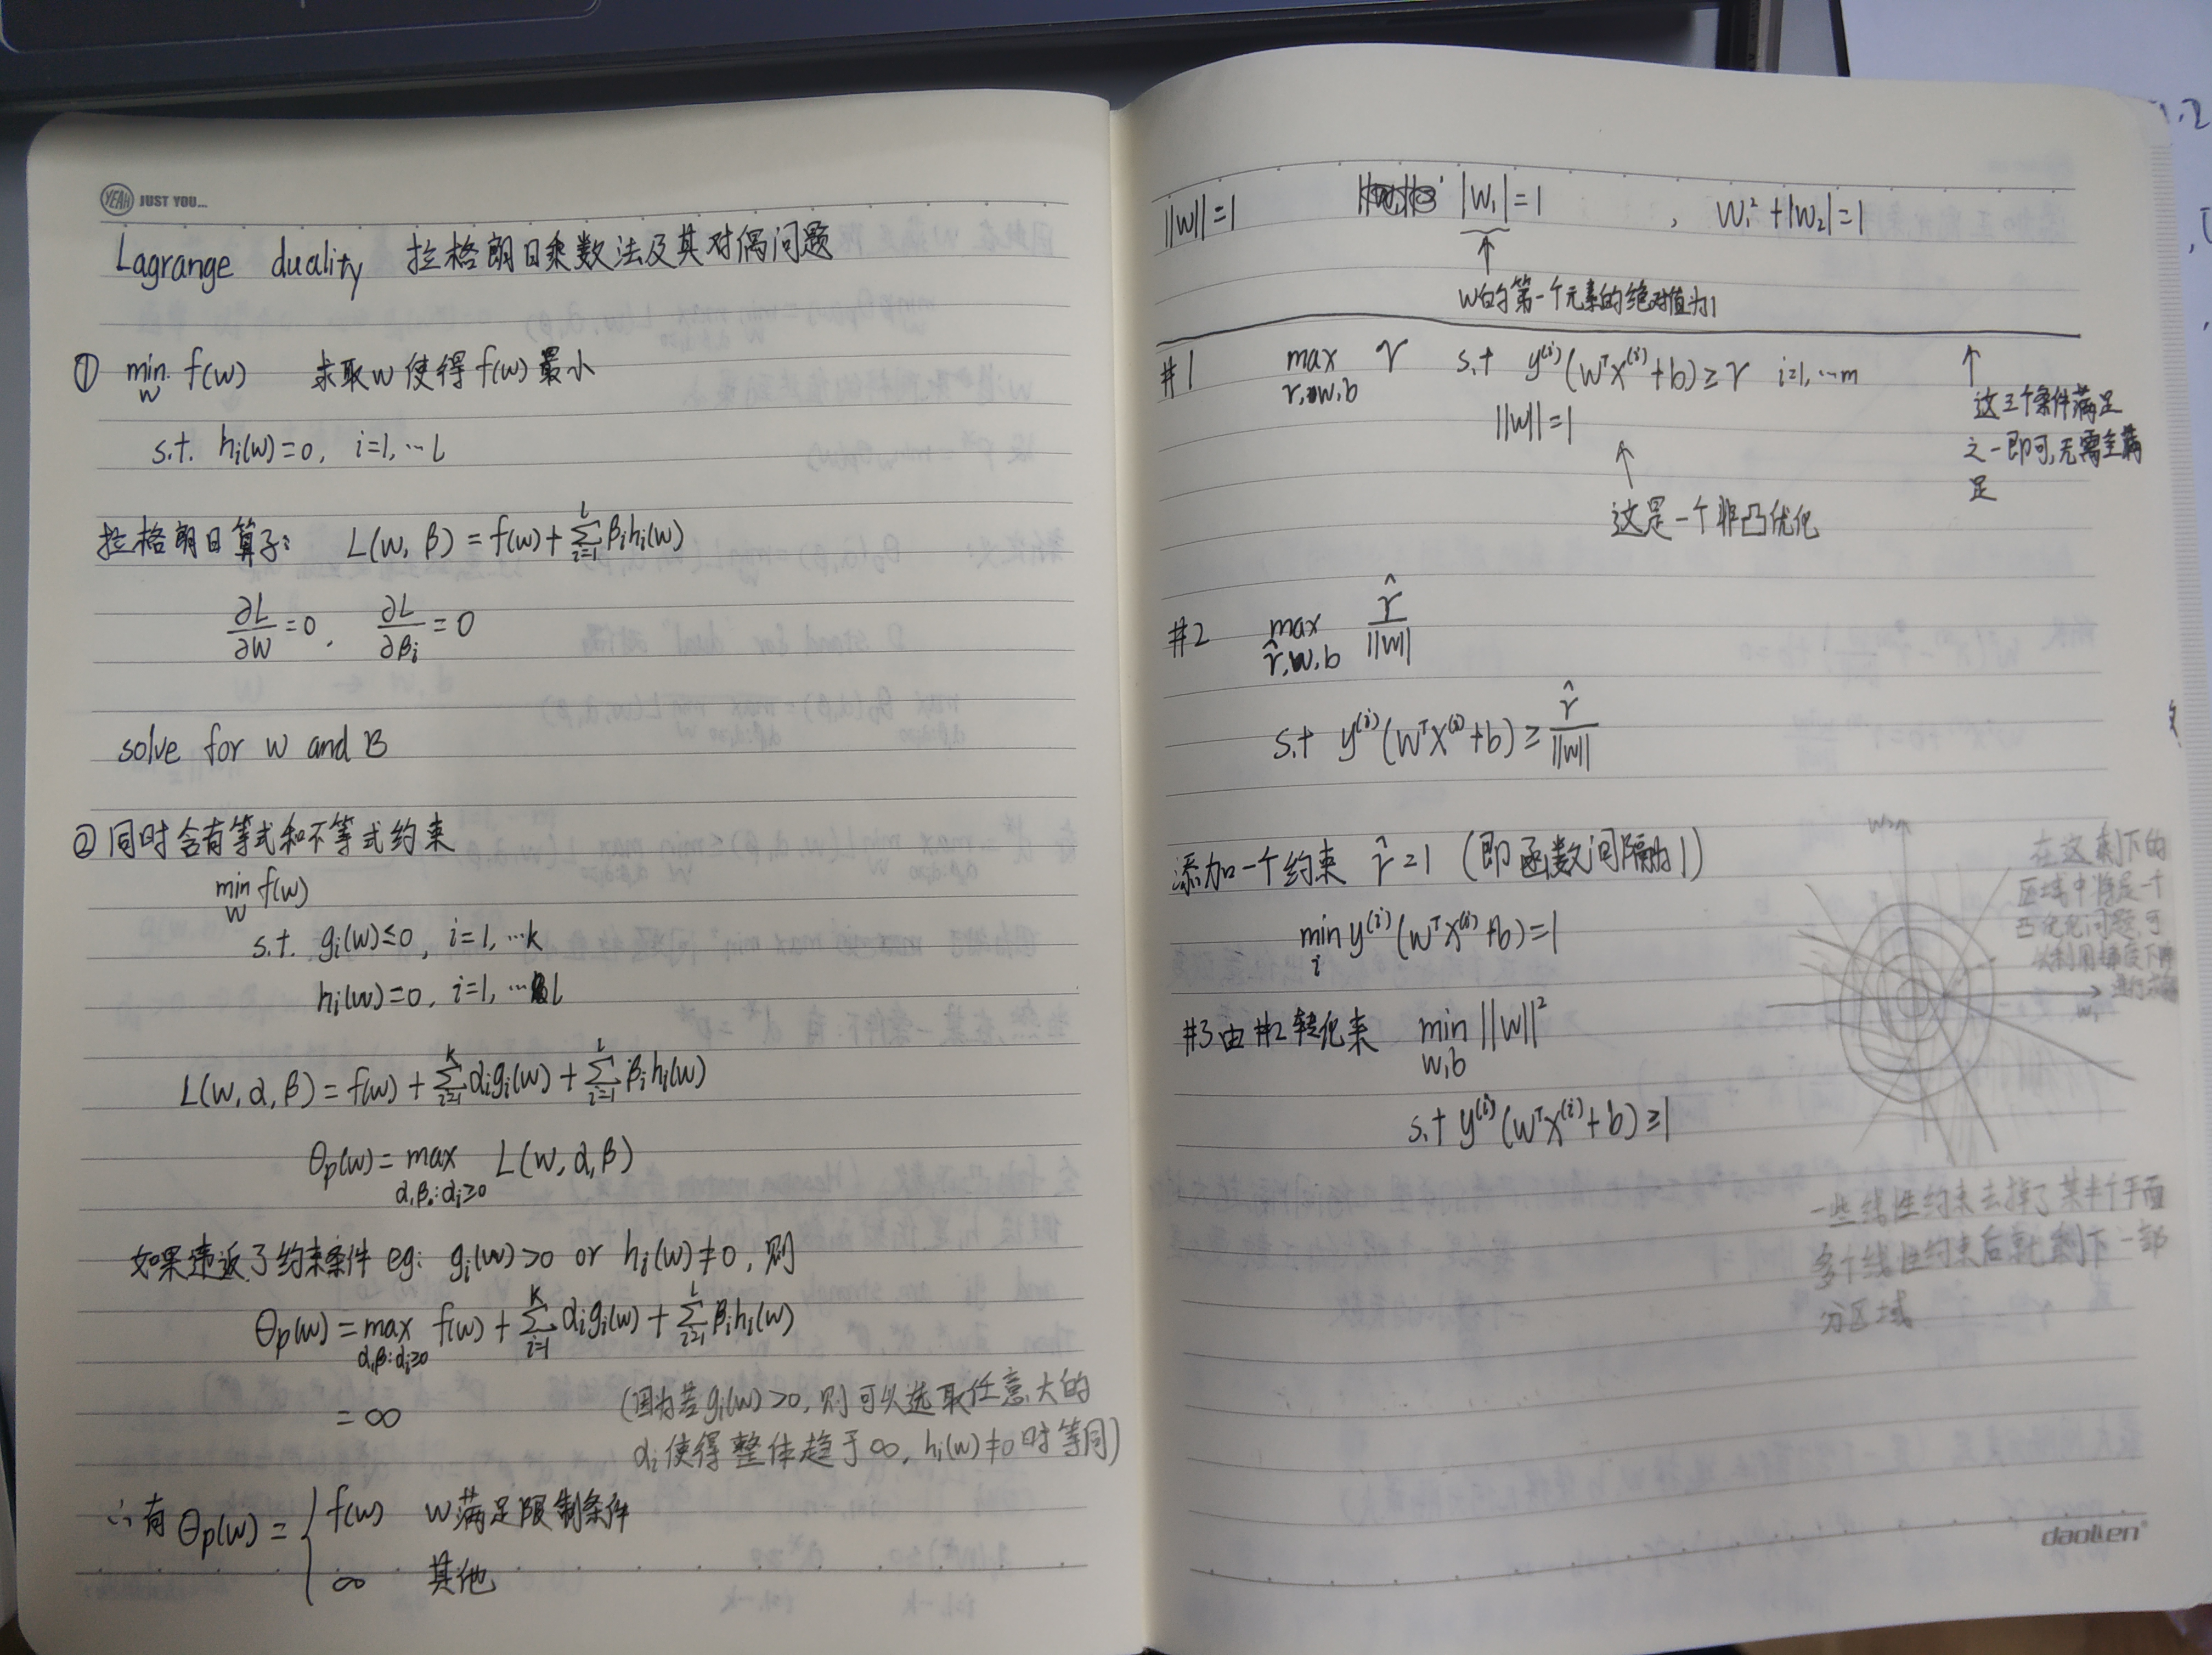 YEAH JUST YOU...
Lagrange duality 拉格朗日乘数法及其对偶问题
① min f(w) 求取w使得f(w)最小
w
s.t. hi(w)=0, i=1,…l
拉格朗日算子: L(w, β) = f(w)+∑βihi(w)
l
i=1
∂L/∂w=0, ∂L/∂βi=0
solve for w and B
② 同时含有等式和不等式约束
min f(w)
w
s.t. gi(w)≤0, i=1, …k
hi(w)=0, i=1, …l
L(w, α, β) = f(w) + ∑αigi(w) + ∑βihi(w)
k l
i=1 i=1
θp(w)= max L(w, α, β)
α,β:αi≥0
如果违返了约束条件 eg: gi(w)>0 or hi(w)≠0, 则
θp(w) = max f(w) + ∑αigi(w) + ∑βihi(w)
α,β:αi≥0
k l
i=1 i=1
= ∞ (因为若gi(w)>0, 则可以选取任意大的
αi使得整体趋于∞, hi(w)≠0时等同)
∴有 θp(w) = { f(w) w满足限制条件
∞ 其他
||w||=1 |w1|=1 , w1²+|w2|=1
↑
w的第一个元素的绝对值为1
#1 max r s.t y(i)(wTx(i)+b)≥r i=1,…m
r,w,b
||w||=1
↑
这是一个非凸优化
↑
这三个条件满足
之一即可,无需全满
足
#2 max r̂/||w||
r̂,w,b
s.t y(i)(wTx(i)+b)≥ r̂/||w||
添加一个约束 r̂=1 (即函数间隔为1)
min y(i)(wTx(i)+b)=1
i
#3由#2转化来 min ||w||²
w,b
s.t y(i)(wTx(i)+b)≥1
w2
w1
在这剩下的
区域中将是一个
凸优化问题,可
以利用梯度下降
一些线性约束去掉了某半个平面
多个线性约束后就剩下一部
分区域
daolien